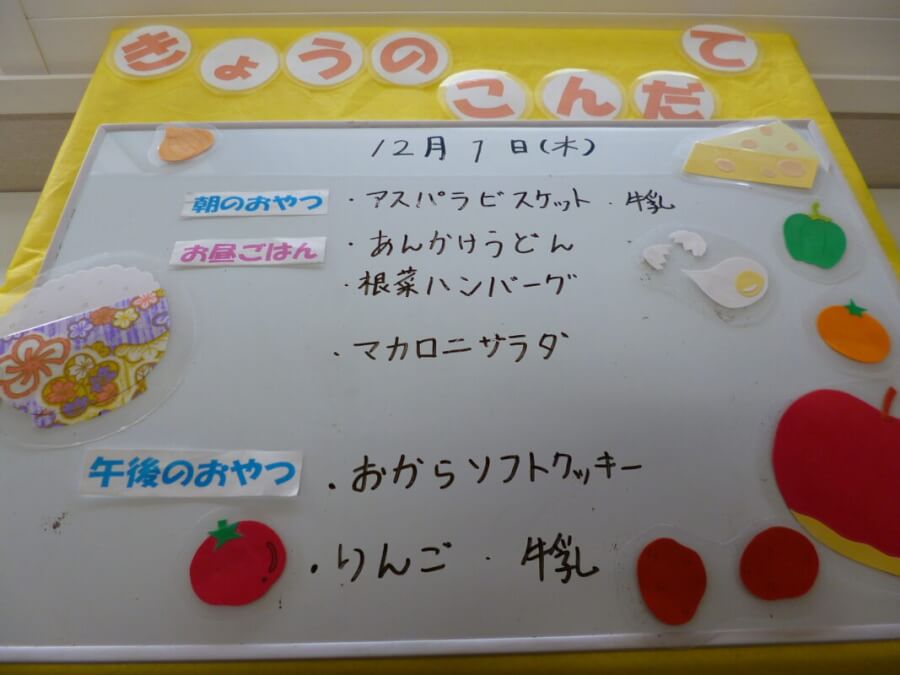 きょうの
こんだて
12月7日(木)
朝のおやつ ・アスパラビスケット ・牛乳
お昼ごはん ・あんかけうどん
・根菜ハンバーグ
・マカロニサラダ
午後のおやつ ・おからソフトクッキー
・りんご ・牛乳